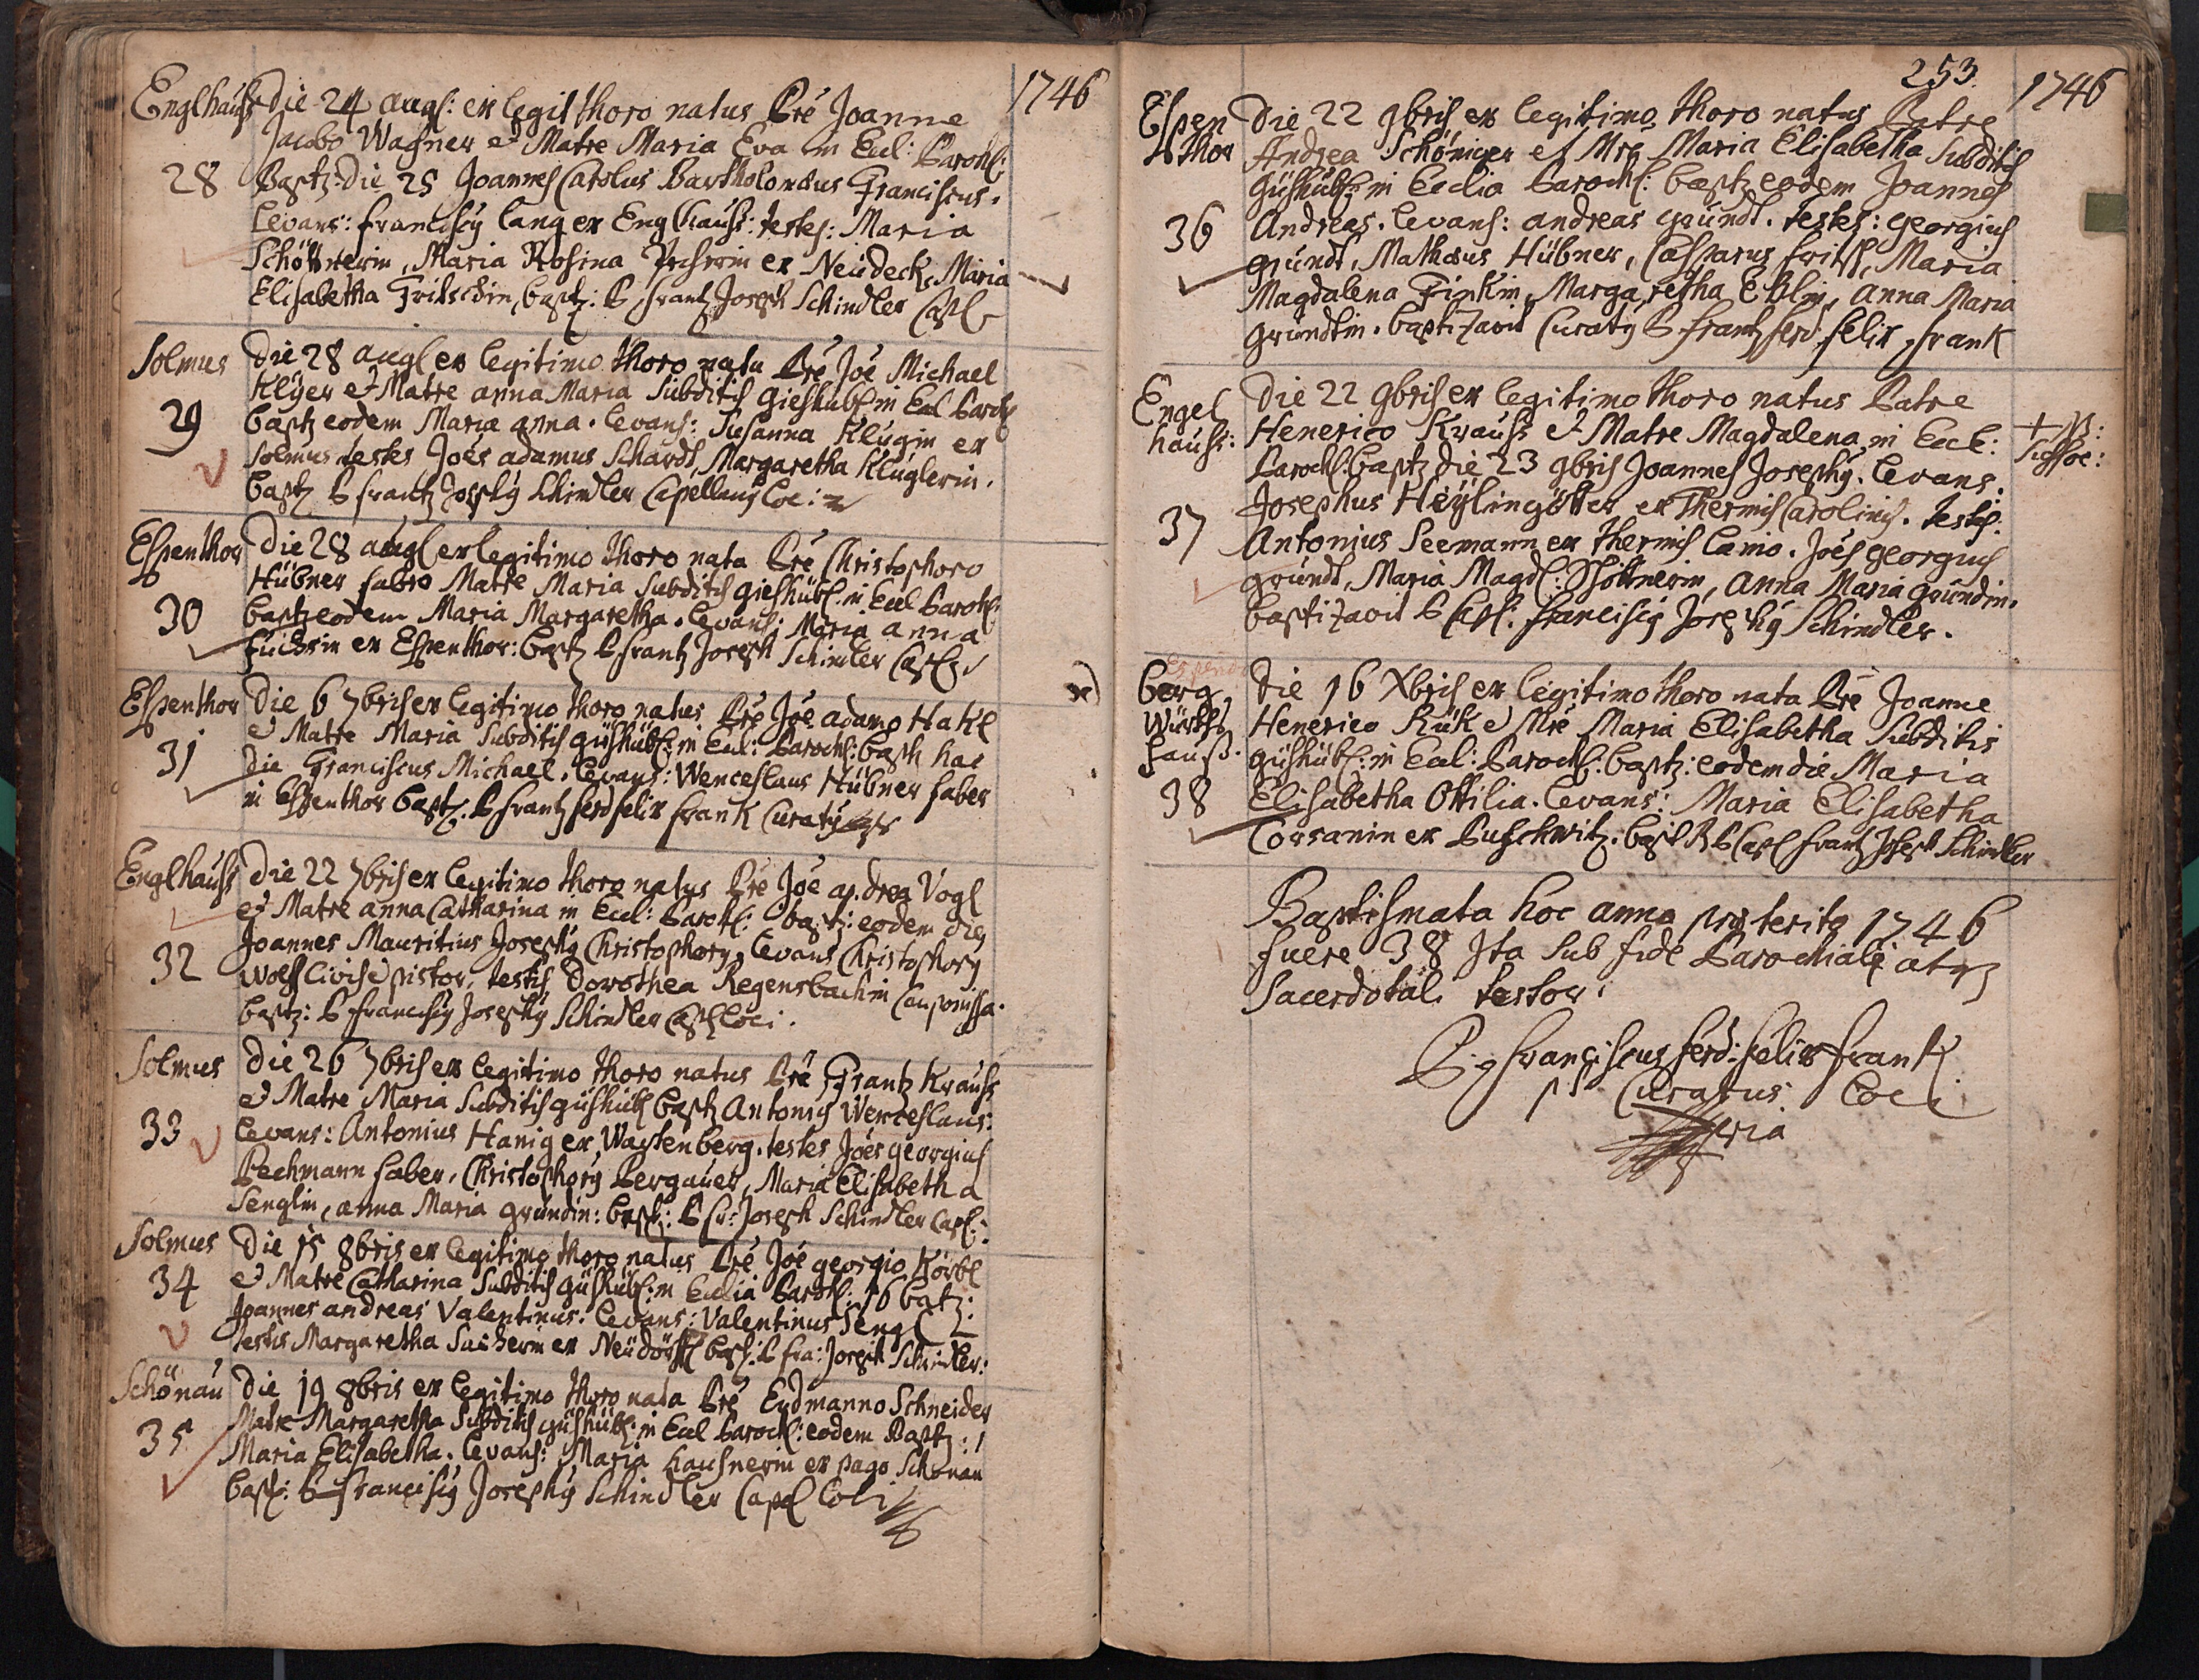 1746
Englhauß die 24 Augl: ex legit thoro natus Pre Joanne
Jacobo Wagner et Matre Maria Eva in Eccl: Paroch:
28 Baptz: die 25 Joannes Carolus Bartholomæus Franciscus.
Levans: Francisc9 Lang ex Englhauß: testes: Maria
Schöttnerin, Maria Rosina ex Neudeck, Maria
Elisabetha Fritschin, baptz: P. Frantz Joseph Schindler Capl
Solmus die 28 augl ex legitimo thoro nata Pre Joe Michael
Kleyer et Matre anna Maria Subditis Gieshübl in Eccl Paroch
29 baptz eodem Maria anna. Levans: Susanna Klugin ex
Solmus testes Joes adamus Schardt, Margaretha Kluglerin.
baptz P frantz Joseph9 Schindler Capellan9 Loci
Espenthor die 28 augl ex legitimo thoro nata Pre Christophoro
Hübner fabro Matre Maria Subditis gieshübl: in Eccl Paroch:
30 baptz eodem Maria Margaretha. Levans: Maria anna
Fuchsin ex Espenthor: baptz P frantz Joseph Schindler Capl
Espenthor die 6 7bris ex legitimo thoro natus Pre Joe adamo Hakl
et Matre Maria Subditis güshübl: in Eccl: Paroch: baptz hac
31 die Franciscus Michael. Levans: Wenceslaus Hübner faber
in Espenthor baptz. P frantz ferd felix frank Curat9
Englhauß die 22 7bris ex legitimo thoro natus Pre Joe andrea Vogl
et Matre anna Catharina in Eccl: Paroch: baptz: eodem die
32 Joannes Mauritius Joseph9 Christophor9, Levans Christophor9
Wolff civis et pistor, testis Dorothea Regensbachin Cauponissa.
baptz: P francisc9 Joseph9 Schindler Capl loci.
Solmus die 26 7bris ex legitimo thoro natus Pre Frantz Krauß
et Matre Maria Subditis güshübl baptz Antoni9 Wenceslaus:
33 Levans: Antonius Hanig ex Wartenberg. testes Joes georgius
Pechmann faber, Christophor9 Pergauer, Maria Elisabetha
Senglin, anna Maria gründin: baptz: P fr: Joseph Schindler Capl:
Solmus die 15 8bris ex legitimo thoro natus Pre Joe georgio Körbl
34 et Matre Catharina Subditis güshübl: in Ecclia Paroch: 16 batz:
Joannes andreas Valentinus. Levans: Valentinus Sengl
testis Margaretha ex Neüdörffl bapt: P fra: Joseph Schindler:
Schönau die 19 8bris ex legitimo thoro nata Pre Erdmanno Schneider
Matre Margaretha Subditis güshübl: in Eccl Paroch: eodem Baptz:
35 Maria Elisabetha. Levans: Maria hausnerin ex pago Schönau
bapt: P francisc9 Joseph9 Schindler Capl Loci
253. 1746
Espen die 22 9bris ex legitimo thoro natus Patre
thor Andrea Schöniger et Mre Maria Elisabetha Subditis
güshübl: in Ecclia Paroch: baptz eodem Joannes
36 Andreas. Levans: andreas gründt. testes: georgius
gründt, Mathæus Hübner, Casparus fritsch, Maria
Magdalena Finkin, Margaretha Eblin, anna Maria
gründtin. baptizavit Curat9 P frantz ferd felix frank
Engel die 22 9bris ex legitimo thoro natus Patre
hauß: Henerico Krauß et Matre Magdalena in Eccl:
Paroch: baptz die 23 9bris Joannes Joseph9. Levans:
37 Josephus Heylingötter ex Thermis Carolinis. testes:
Antonius Seemann ex thermis Carno. Joes georgius
gründt, Maria Magdl: Schöttnerin, Anna Maria gründin.
baptizavit P Capl: francisc9 Joseph9 Schindler.
Berg die 16 Xbris ex legitimo thoro nata Pre Joanne
Würths Henerico Kük et Mre Maria Elisabetha Subditis
hauß. güshübl: in Eccl: Paroch: baptz: eodem die Maria
38 Elisabetha Ottilia. Levans: Maria Elisabetha
Corsanin ex Puschwitz. bapt P Capl frantz Joseph Schindler
Baptismata hoc anno præterito 1746
fuere 38 Ita sub fide Parochiali atq3
Sacerdotali testor.
P. Franciscus ferd: felix frank
Curatus Loci